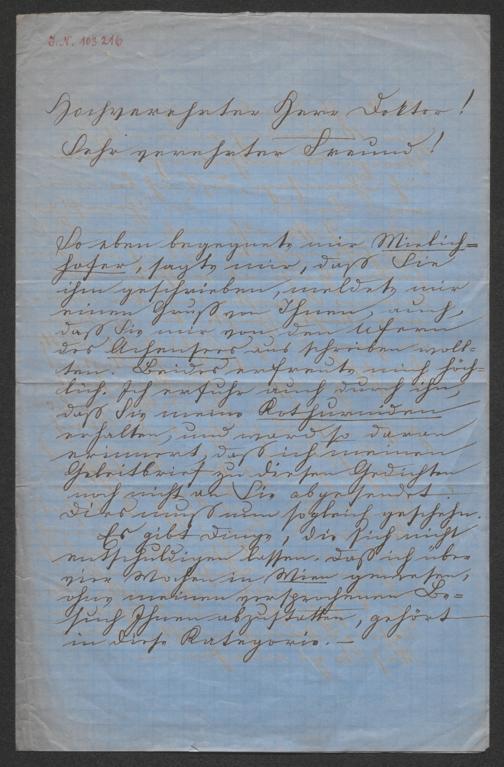 J. N. 103216
Hochverehrter Herr Doktor!
Sehr verehrter Freund!
So eben begegnete mir Mielich=
hofer, sagte mir, daß Sie
ihm geschrieben, meldete mir
einen Gruß von Ihnen, auch,
daß Sie mir von den Ufern
des Achensees aus schreiben woll-
ten. Beides erfreute mich höch-
lich. Ich erfuhr auch durch ihn,
daß Sie meine Rothurniden
erhalten, und ward so daran
erinnert, daß ich meinen
Geleitbrief zu diesen Gedichten
noch nicht an Sie abgesendet.
Dies muß nun sogleich geschehen.
Es gibt Dinge, die sich nicht
entschuldigen lassen. Daß ich über
vier Wochen in Wien gewesen,
ohne meinen versprochenen Be=
such Ihnen abzustatten, gehört
in diese Kategorie. —